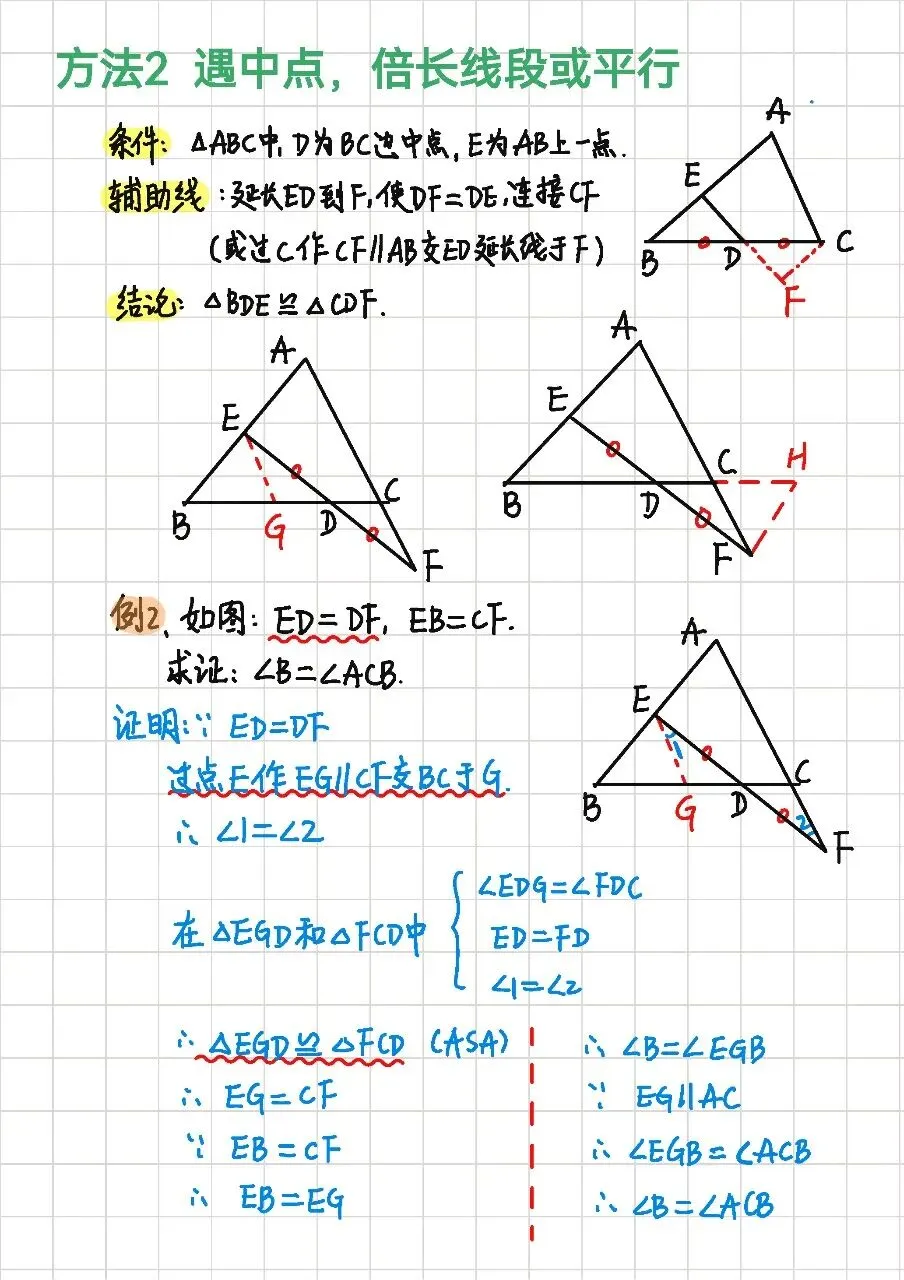 方法2 遇中点，倍长线段或平行
条件：△ABC中，D为BC边中点，E为AB上一点.
辅助线：延长ED到F，使DF=DE，连接CF
（或过C作CF∥AB交ED延长线于F）
结论：△BDE≌△CDF.
A
E
B
D
C
F
A
E
B
G
D
C
F
A
E
B
D
C
H
F
例2、如图：ED=DF，EB=CF.
求证：∠B=∠ACB.
A
E
B
G
D
C
2
F
证明：∵ ED=DF
过点E作EG∥CF交BC于G.
∴ ∠1=∠2
在△EGD和△FCD中
∠EDG=∠FDC
ED=FD
∠1=∠2
∴ △EGD≌△FCD (ASA)
∴ EG=CF
∵ EB=CF
∴ EB=EG
∴ ∠B=∠EGB
∵ EG∥AC
∴ ∠EGB=∠ACB
∴ ∠B=∠ACB